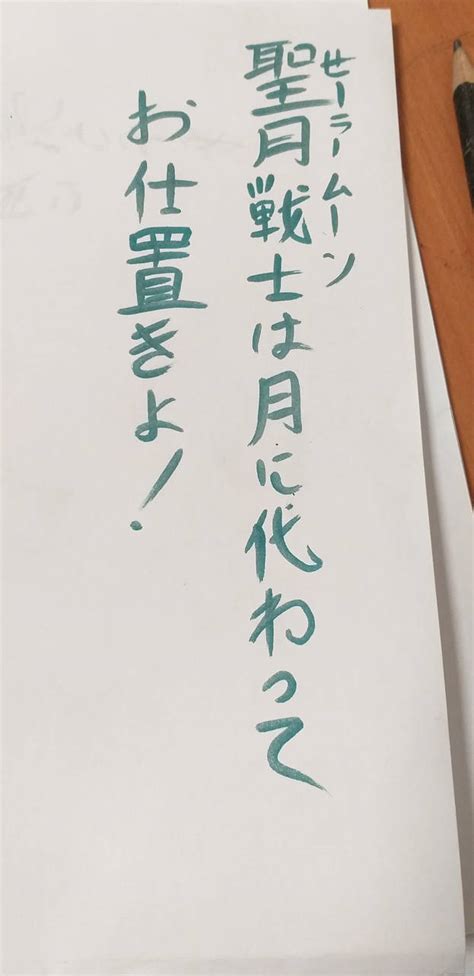 セーラームーン
聖月戦士は月に代わって
お仕置きよ!